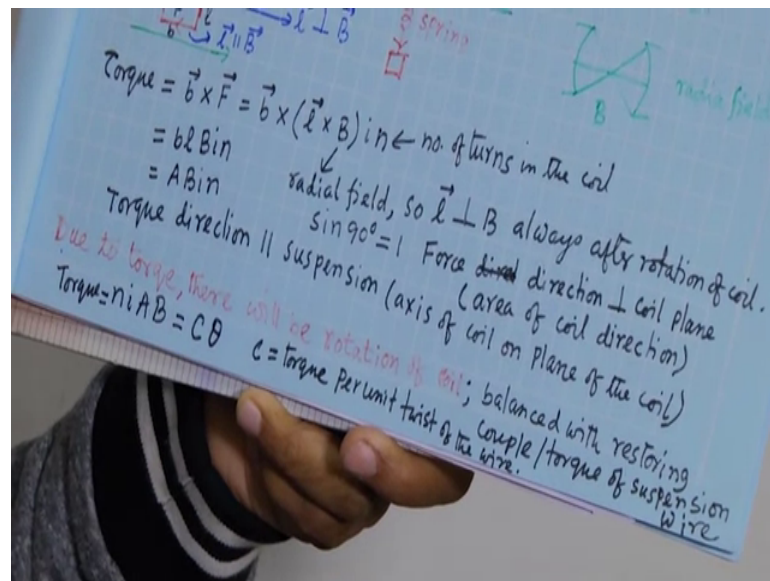 l
b
l⃗ ∥ B⃗
l⃗ ⊥ B⃗
spring
B
radial field
Torque = b⃗ × F⃗ = b⃗ × (l⃗ × B) in ← no. of turns in the coil
= blBin
= ABin
radial field, so l⃗ ⊥ B always after rotation of coil.
sin 90° = 1 Force direction ⊥ coil plane
(area of coil direction)
Torque direction ∥ suspension (axis of coil on plane of the coil)
Due to torqe, there will be rotation of coil; balanced with restoring
couple/torque of suspension
wire
Torque = niAB = Cθ
C = torque per unit twist of the wire.